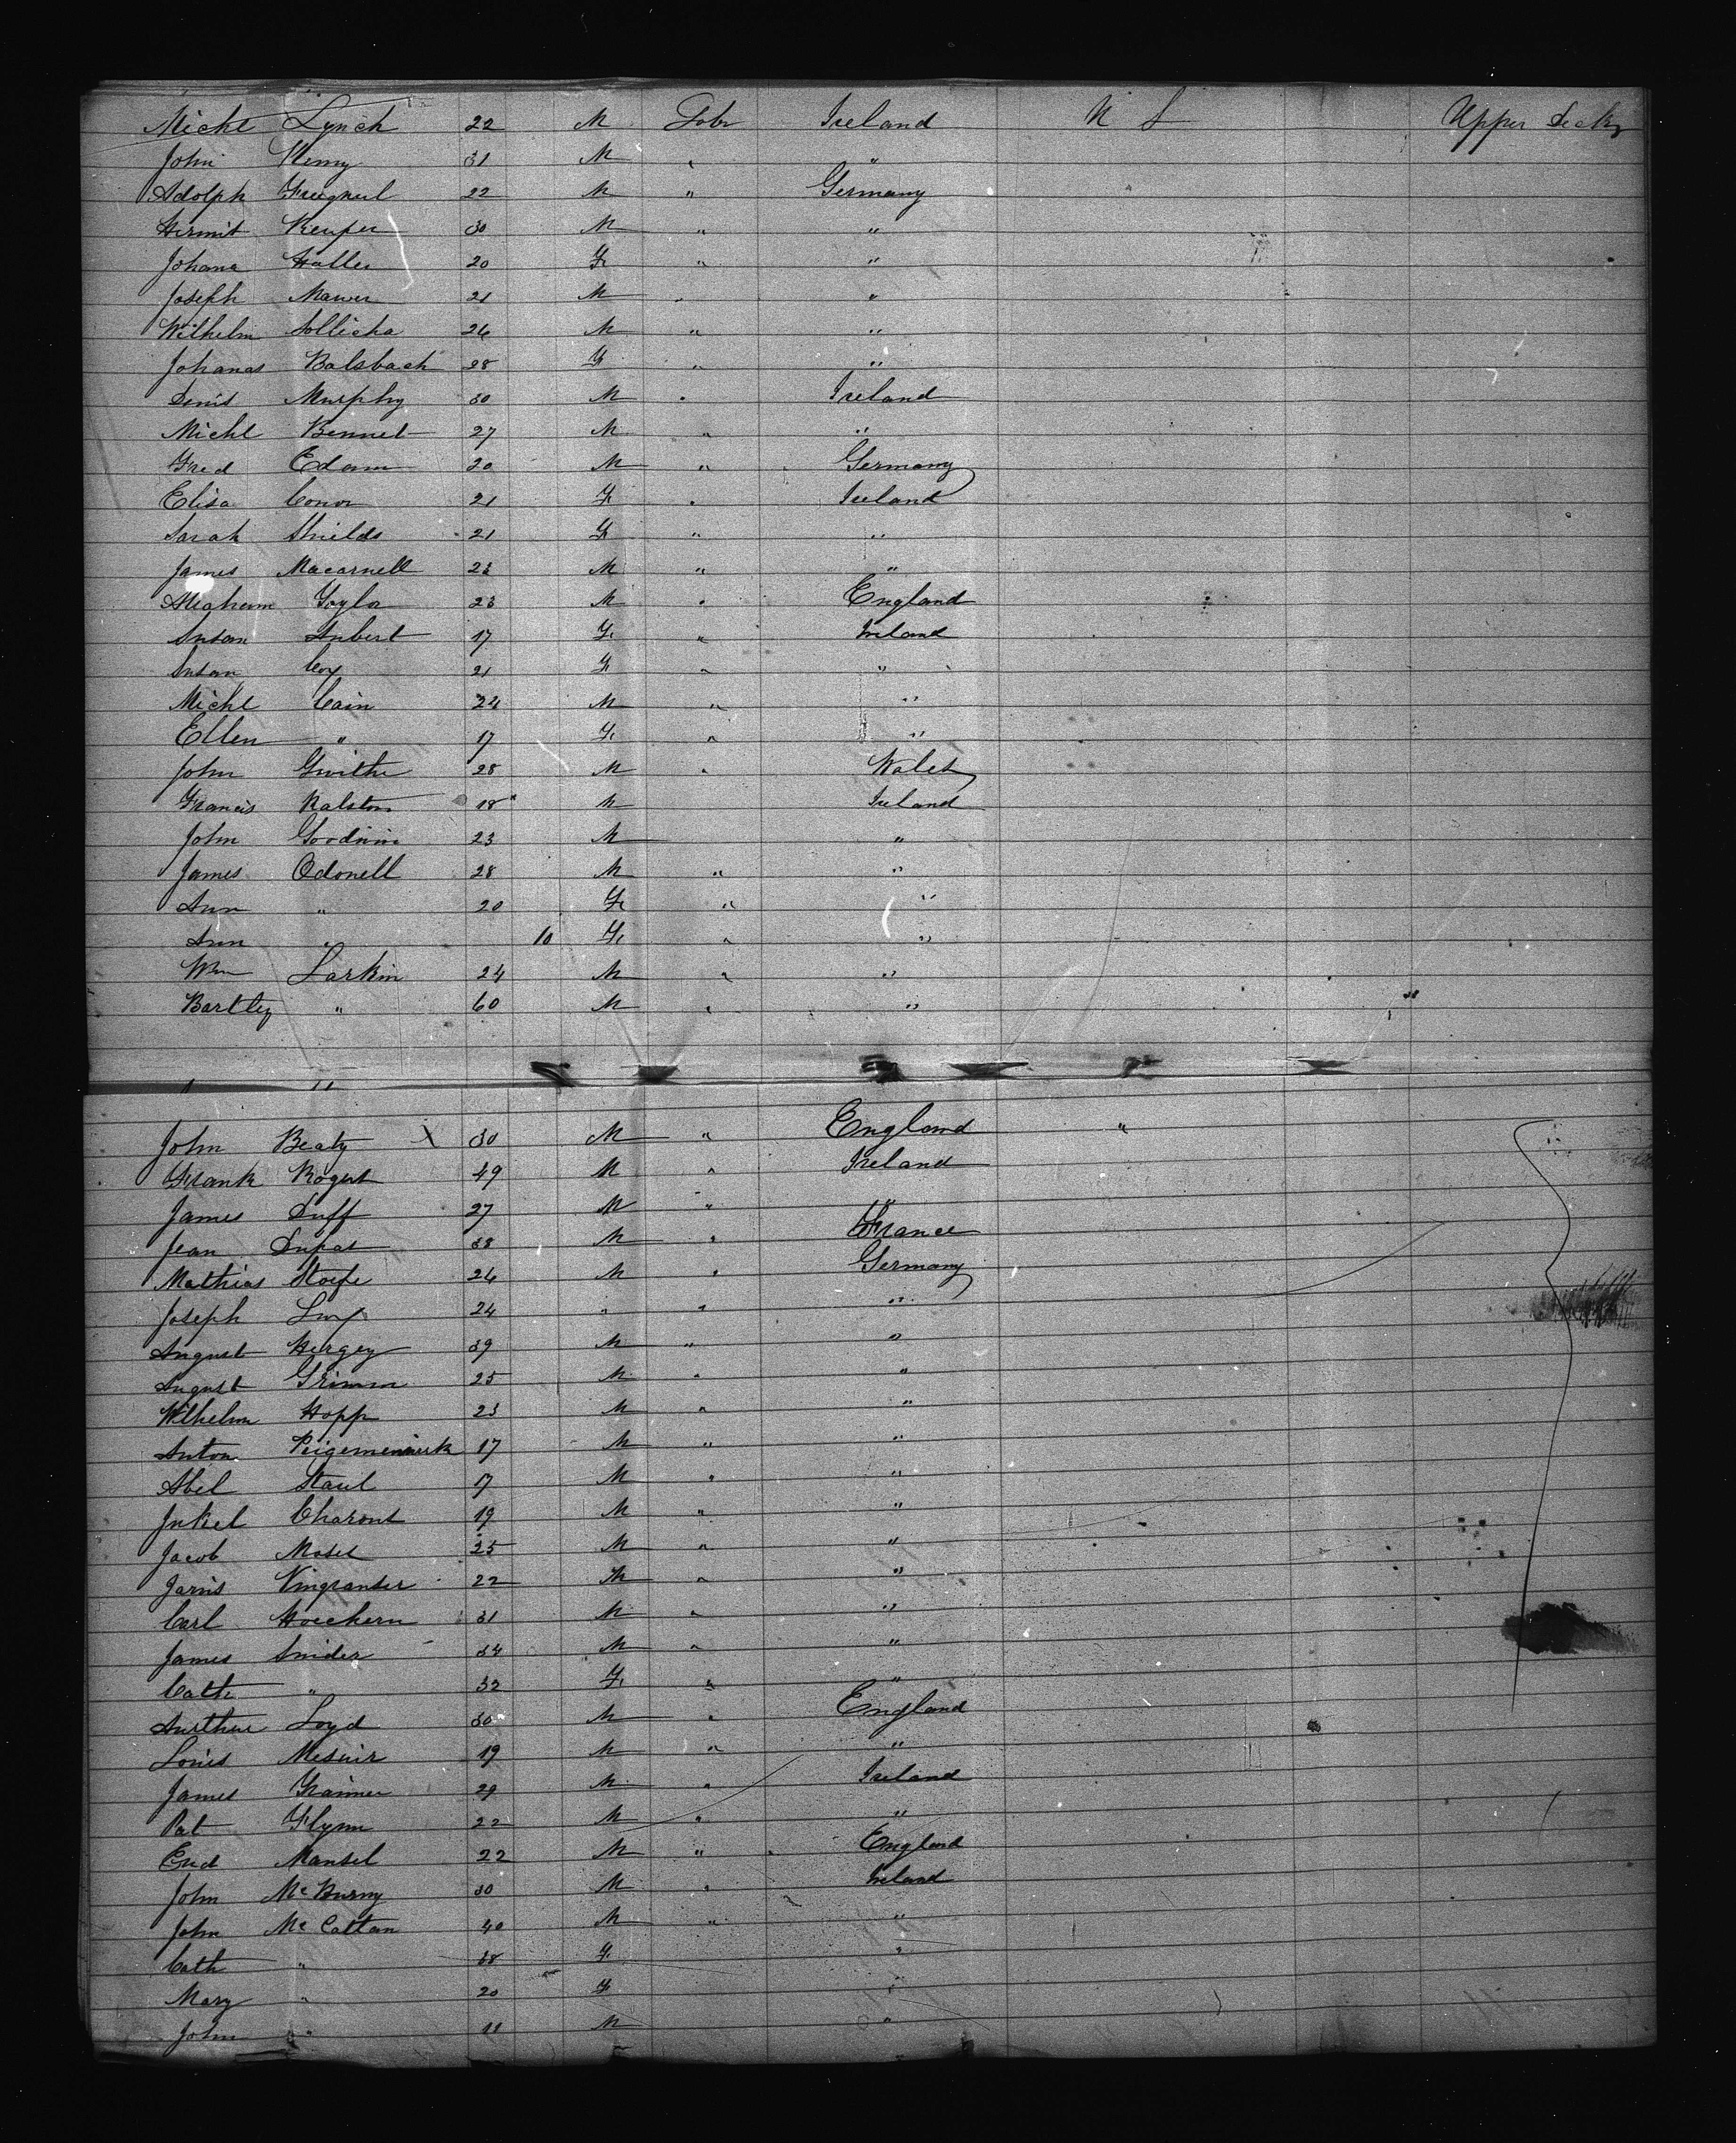 Michl Lynch 22 M Labr Ireland U S Upper Decks
John Henry 31 M " "
Adolph 22 M " Germany
Hermit Keuper 30 M " "
Johana Haller 20 F " "
Joseph Mawer 21 M " "
Wilhelm Sollicha 26 M " "
Johanas Balsbach 28 F " "
Denis Murphy 30 M " Ireland
Michl Bennet 27 M " "
Fred Edam 20 M " Germany
Elisa Conor 21 F " Ireland
Sarah Shields 21 F " "
James Macarnell 23 M " "
Gaylor 23 M " England
Susan Aubert 17 F " Ireland
Susan Coy 21 F " "
Michl Cain 24 M " "
Ellen " 17 F " "
John Gwithe 28 M " Wales
Francis Ralston 18 M Ireland
John Goodwin 23 M "
James Odonell 28 M " "
Ann " 20 F " "
Ann " 10 F " "
Wm Larkin 24 M " "
Bartley " 60 M " "
"
John Beaty X 30 M " England "
Frank Rogert 49 M " Ireland
James Duff 27 M " "
Jean Dupat 38 M " France
Mathias Stoefe 26 M " Germany
Joseph 24 " " "
August Hergey 39 M " "
August Grimm 25 M " "
Wilhelm Hopp 23 M " "
Anton 17 M " "
Abel Staul 17 M " "
Charout 19 M " "
Jacob Mosel 25 M " "
Jarvis Vingranser 22 M " "
Carl Hoechern 31 M " "
James Snider 34 M " "
Cath " 32 F " "
Aurthur Loyd 30 M " England
Louis Mesuir 19 M " "
James Grainer 29 M " Ireland
Pat Flynn 22 M " "
Mansel 22 M " England
John McBurny 30 M " Ireland
John McCattan 40 M " "
Cath " 38 F "
Mary " 20 F "
John " 11 M "